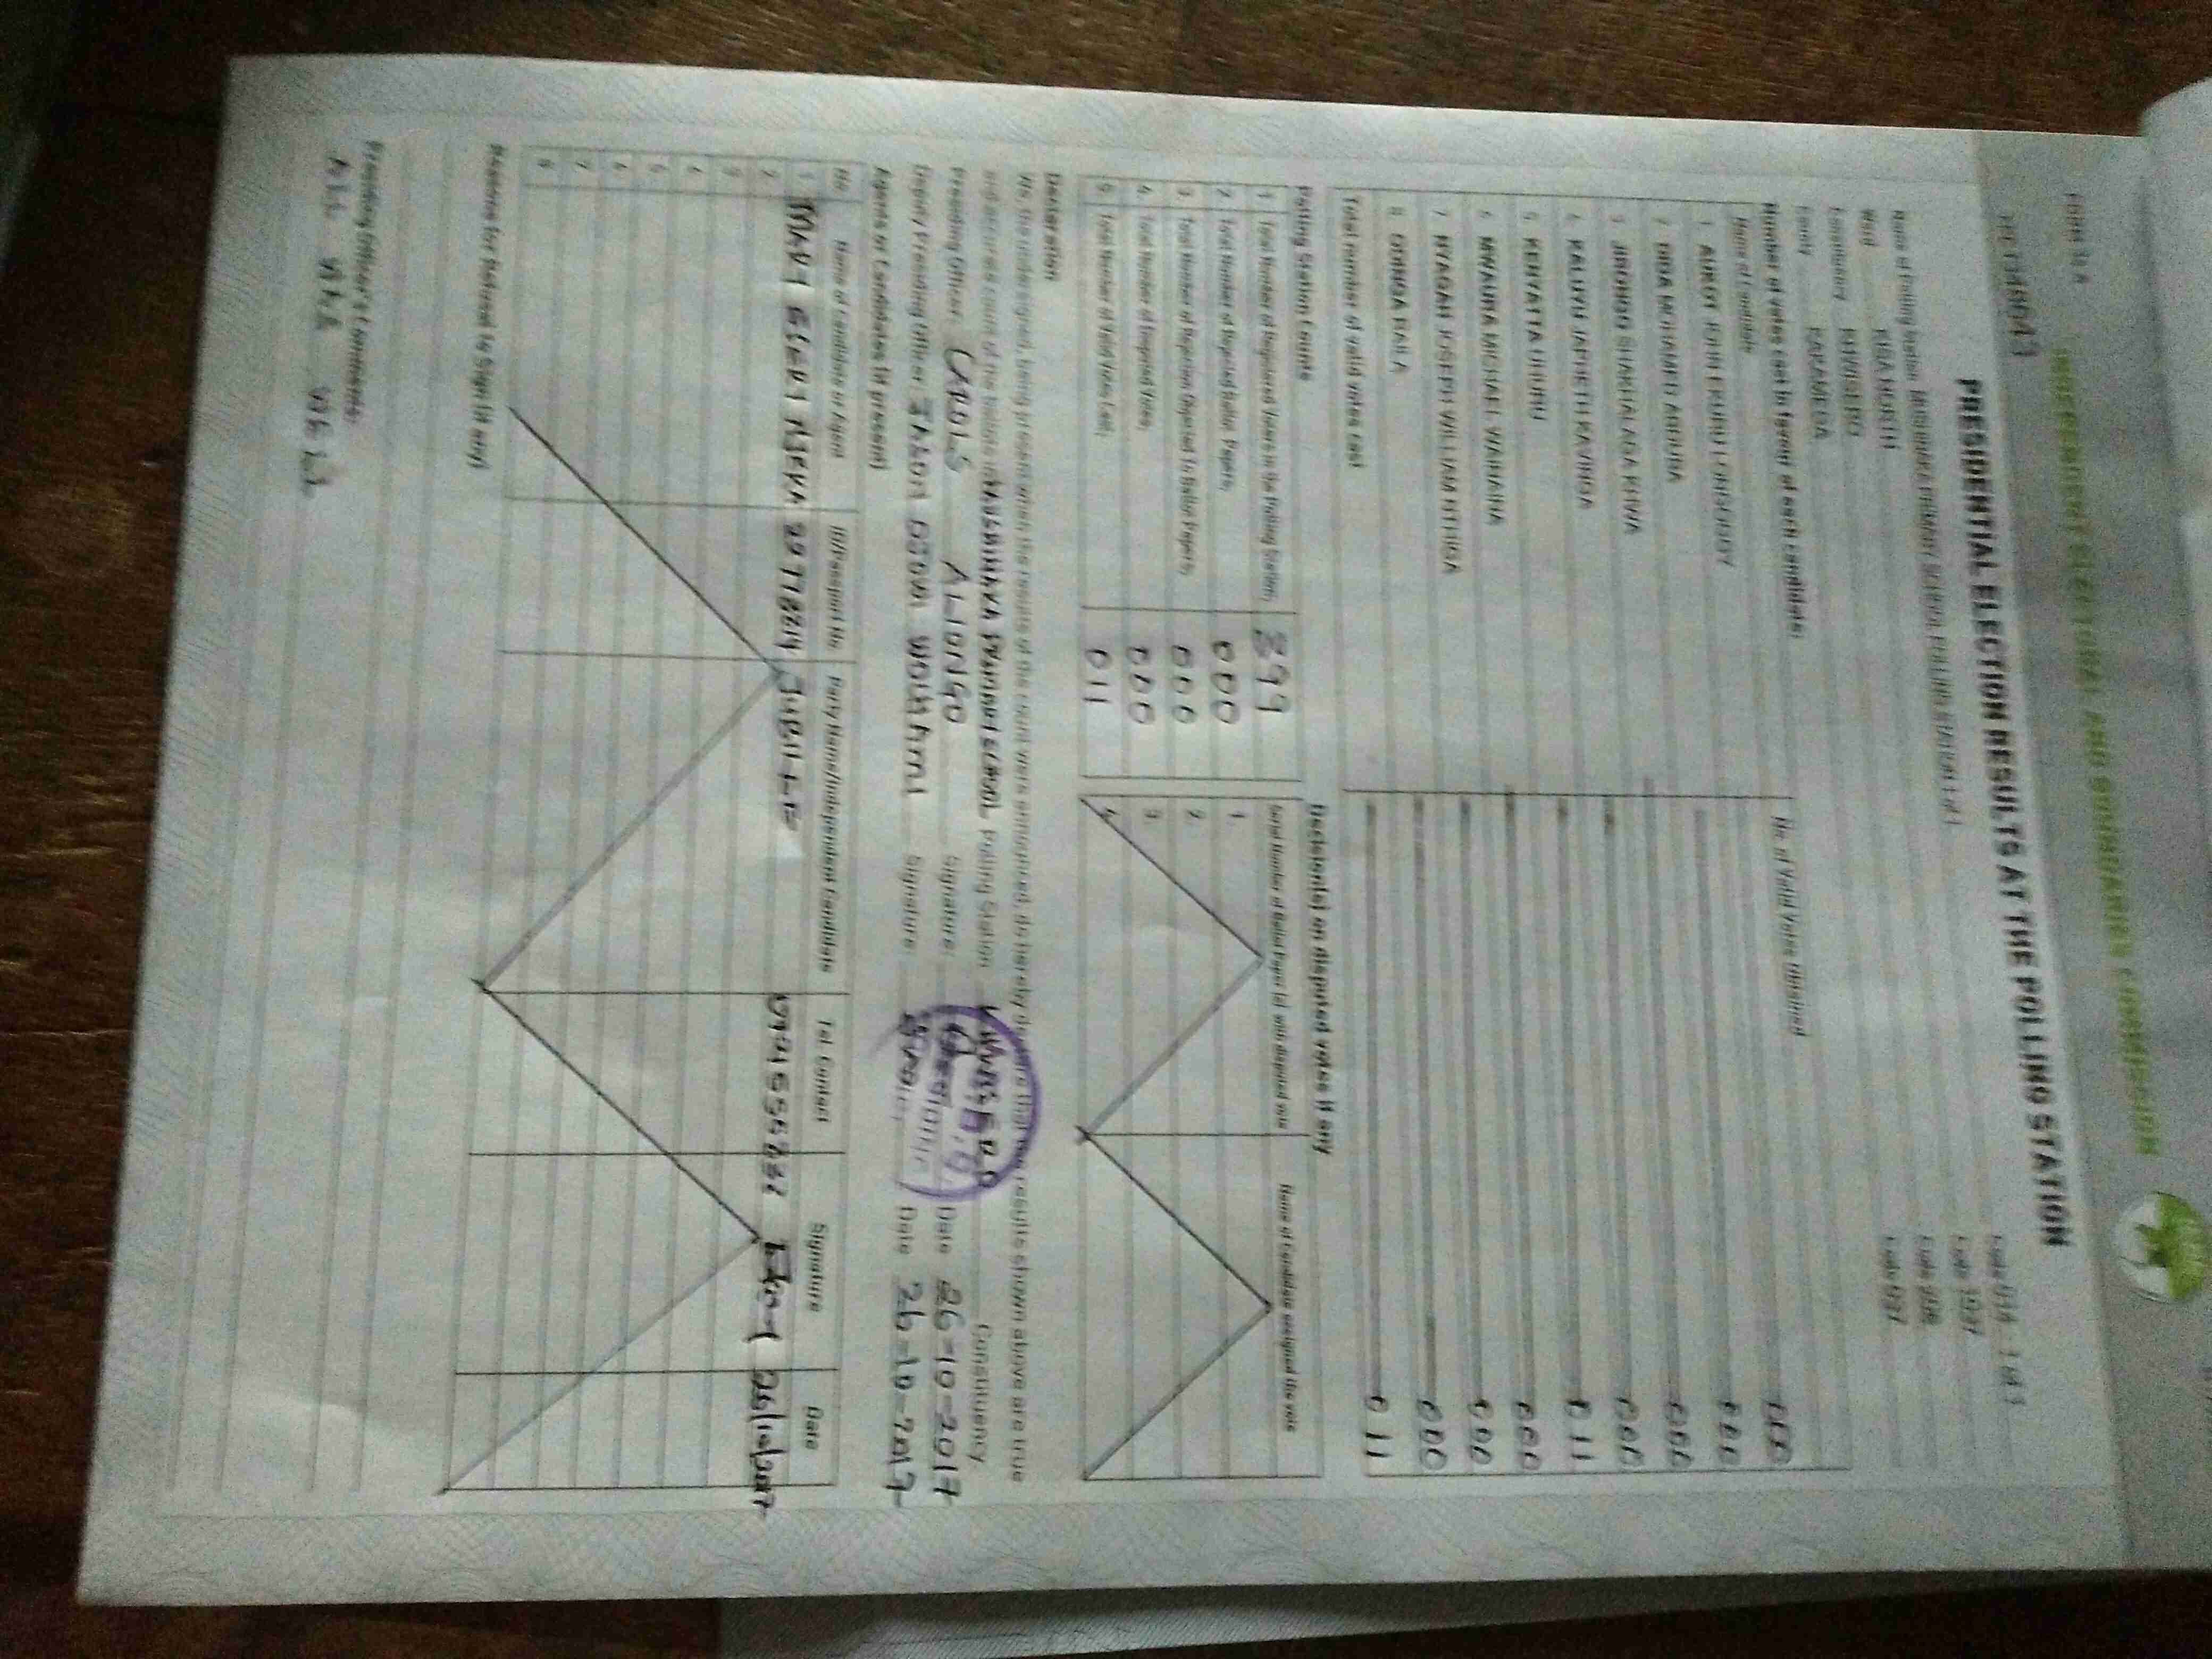 FORM 34A
INDEPENDENT ELECTORAL AND BOUNDARIES COMMISSION
PRESIDENTIAL ELECTION RESULTS AT THE POLLING STATION
Name of Polling Station PRIMARY SCHOOL POLLING STATION 1 of 1
Ward KISA NORTH
Constituency KHWISERO
County KAKAMEGA
Number of votes cast in favour of each candidate:
Name of Candidate No. of Valid Votes Obtained
1 AUKOT JOHN EKURU LONGOGGY 000
2 DIDA MOHAMED ABDUBA 000
3 JIRONGO SHAKHALAGA KHWA 000
4 KALUYU JAPHETH KAVINGA 000
5 KENYATTA UHURU 011
6 MWAURA MICHAEL WAINAINA 000
7 NYAGAH JOSEPH WILLIAM NTHIGA 000
8 ODINGA RAILA 000
Total number of valid votes cast 011
Polling Station Counts
1 Total Number of Registered Voters in the Polling Station; 399
2 Total Number of Rejected Ballot Papers; 000
3 Total Number of Rejection Objected to Ballot Papers; 000
4 Total Number of Disputed Votes; 000
5 Total Number of Valid Votes Cast; 011
Decision(s) on disputed votes if any
Serial Number of Ballot Paper (s) with disputed vote Name of Candidate assigned the vote
1
2
3
4
Declaration
We, the undersigned, being present when the results of the count were announced, do hereby declare that the results shown above are true
and accurate count of the ballots in PRIMARY SCHOOL Polling Station KHWISERO Constituency
Presiding Officer CAROLS ALIONGO Signature: Date 26-10-2017
Deputy Presiding Officer Signature: Date 26-10-2017
Agents or Candidates (if present)
No Name of Candidate or Agent ID/Passport No Party Name/Independent Candidate Tel. Contact Signature Date
1 MARY JUBILEE Mary 26/10/2017
2
3
4
5
6
7
8
Reasons for Refusal to Sign (if any)
Presiding Officer's Comments:
ALL WAS WELL